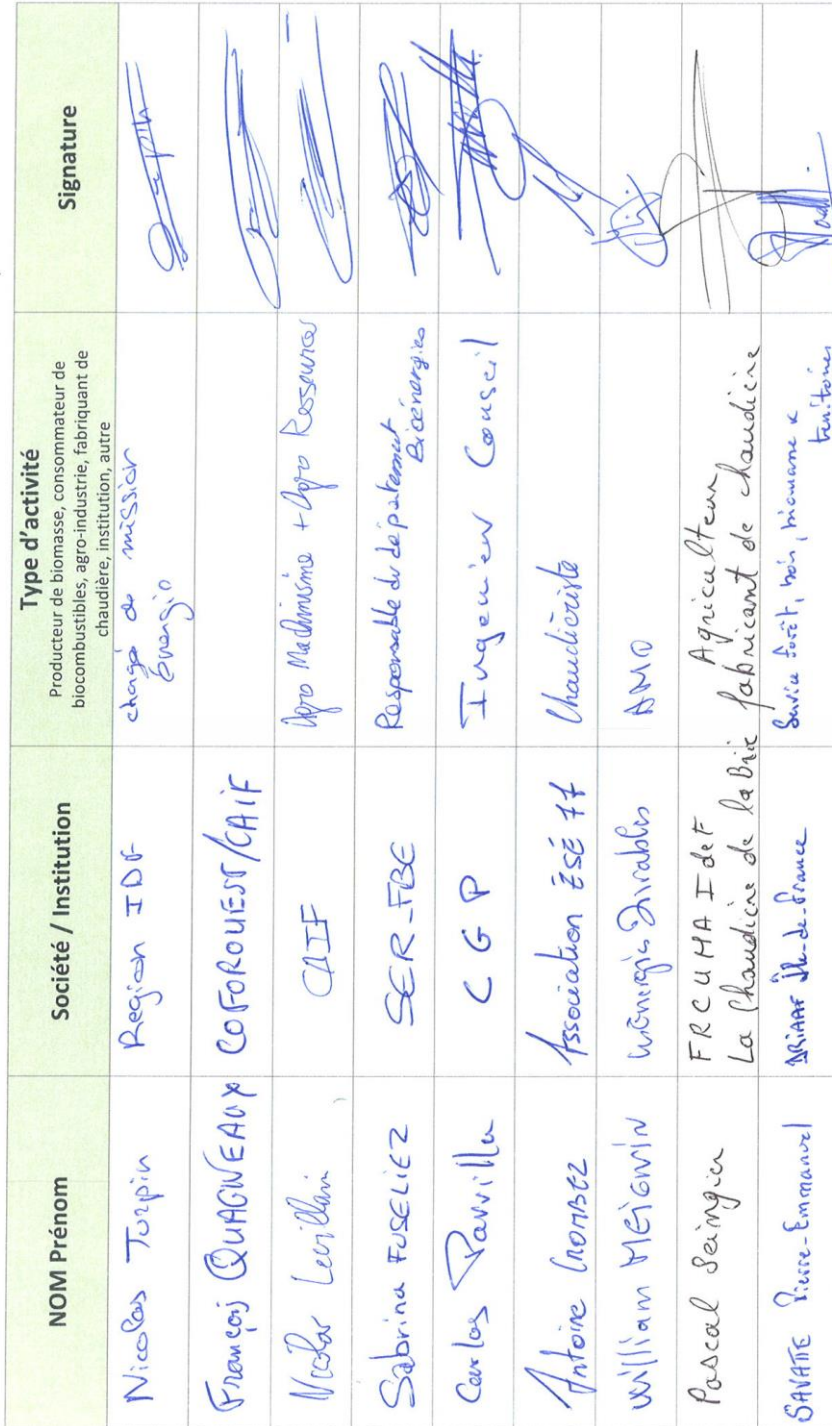 NOM Prénom
Société / Institution
Type d'activité
Producteur de biomasse, consommateur de
biocombustibles, agro-industrie, fabriquant de
chaudière, institution, autre
Signature
Nicolas Turpin
Region IDF
chargé de mission
énergie
François QUAGNEAUX
COFOROUEST/CAIF
Nicolas Levillain
CAIF
Agro Machinisme + Agro Ressources
Sabrina FUSELIEZ
SER-FBE
Responsable du département
Bioénergies
Carlos
CGP
Ingenieur Conseil
Antoine CROMBEZ
Association ÉSÉ 77
Chaudiériste
William MEIGNIN
Durables
AMO
Pascal Seingier
FRCUMA IdeF
Agriculteur
La Chaudière de la Brie
fabricant de chaudière
SAVATTE Pierre-Emmanuel
DRIAAF Île-de-France
Service forêt, bois, biomasse &
territoires